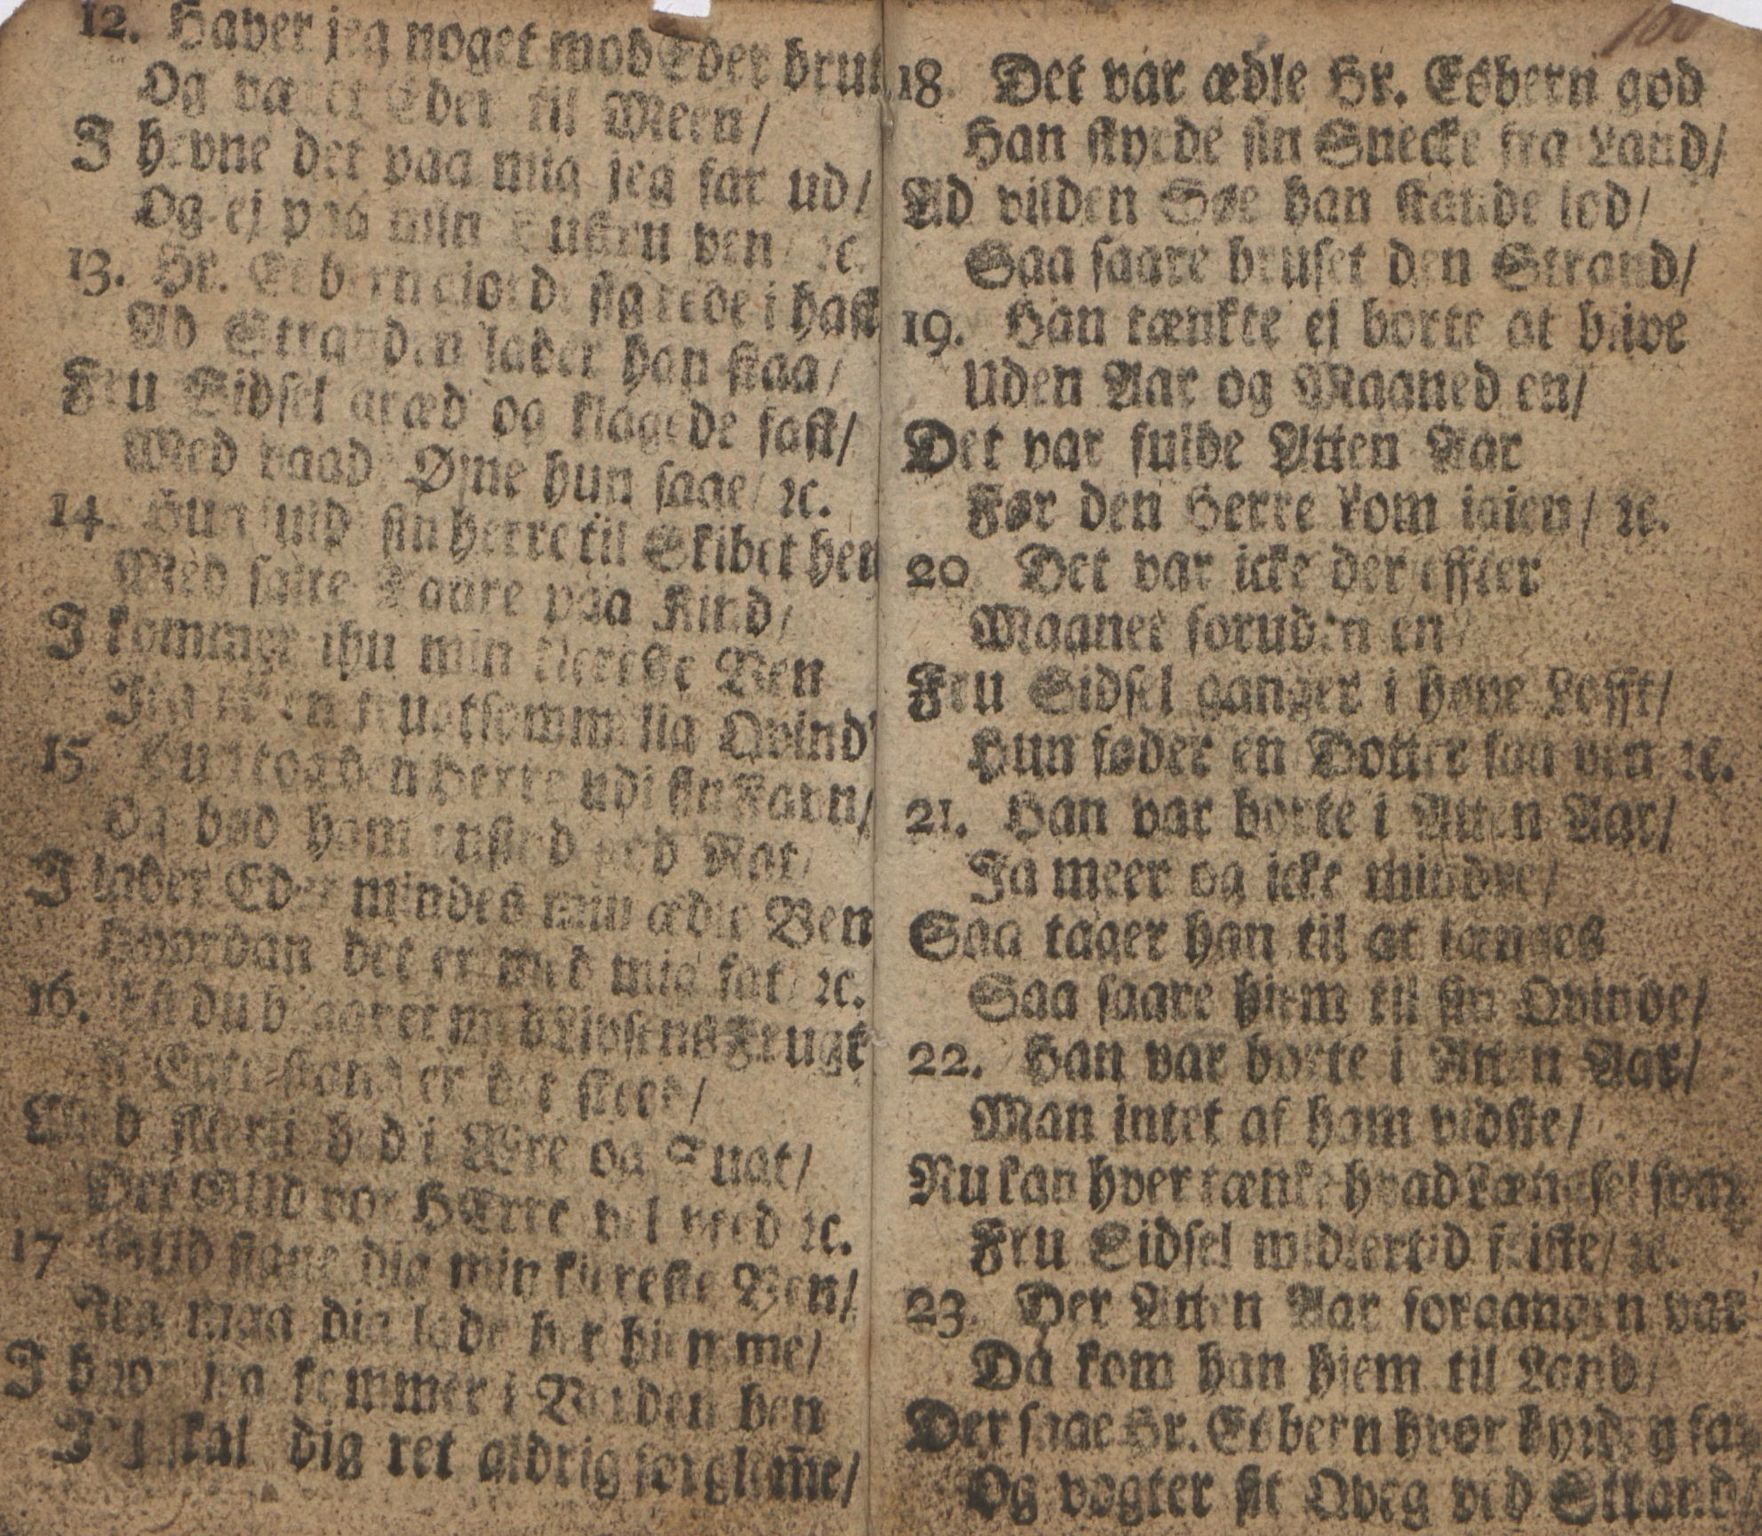 12. Haver jeg noget mod Eder brut
Og været Eder til Meen/
I hevne det paa mig jeg far ud/
Og ej paa min Hustru ven/ ꝛc.
13. Hr. Esbern giorde sig rede i hast
Ad Stranden lader han staa/
Fru Sidsel græd og klagede fast/
Med vaade Øjne hun saae/ ꝛc.
14. Hun fuld sin herre til Skibet hen
Med salte Taare paa Kind/
I kommer ihu min kiereste Ven
Jeg er en frugtsommelig Qvind'
15. Hun tog den Herre udi sin Favn/
Og bød ham tusind god Nat/
I lader Eder mindes min ædle Ven
Hvordan det er med mig fat/ ꝛc.
16. Est du beqaaret med Livsens Frugt
er det skeed/
Med i Ære og Tugt/
Det Gud vor HErre vel veed ꝛc.
17 Gud signe dig min kiereste Ven/
Jeg maa dig lade her hiemme/
I hvor jeg kommer i Verden hen
Jeg skal dig ret aldrig forglem̅e/
18. Det var ædle Hr. Esbern god
Han styrde sin Snecke fra Land/
Ad vilden Søe han stande lod/
Saa saare bruset den Strand/
19. Han tænkte ej borte at blive
Uden Aar og Maaned en/
Det var fulde Atten Aar
Før den Herre kom igien/ ꝛc.
20. Det var icke der effter
Maanet foruden en/
Fru Sidsel ganger i høye Lofft/
Hun føder en Dotter saa ven ꝛc.
21. Han var borte i Atten Aar/
Ja meer og icke mindre/
Saa tager han til at længes
Saa saare hiem til sin Qvinde/
22. Han var borte i Atten Aar/
Man intet af ham vidste/
Nu kan hver tænke hvad Længsel svar
Fru Sidsel midlertid friste/ ꝛc.
23. Der Atten Aar forgangen var
Da kom han hjem til Land/
Der saae Hr. Esbern hvor hyrden far
Og vogter sit Qveg ved Strand/